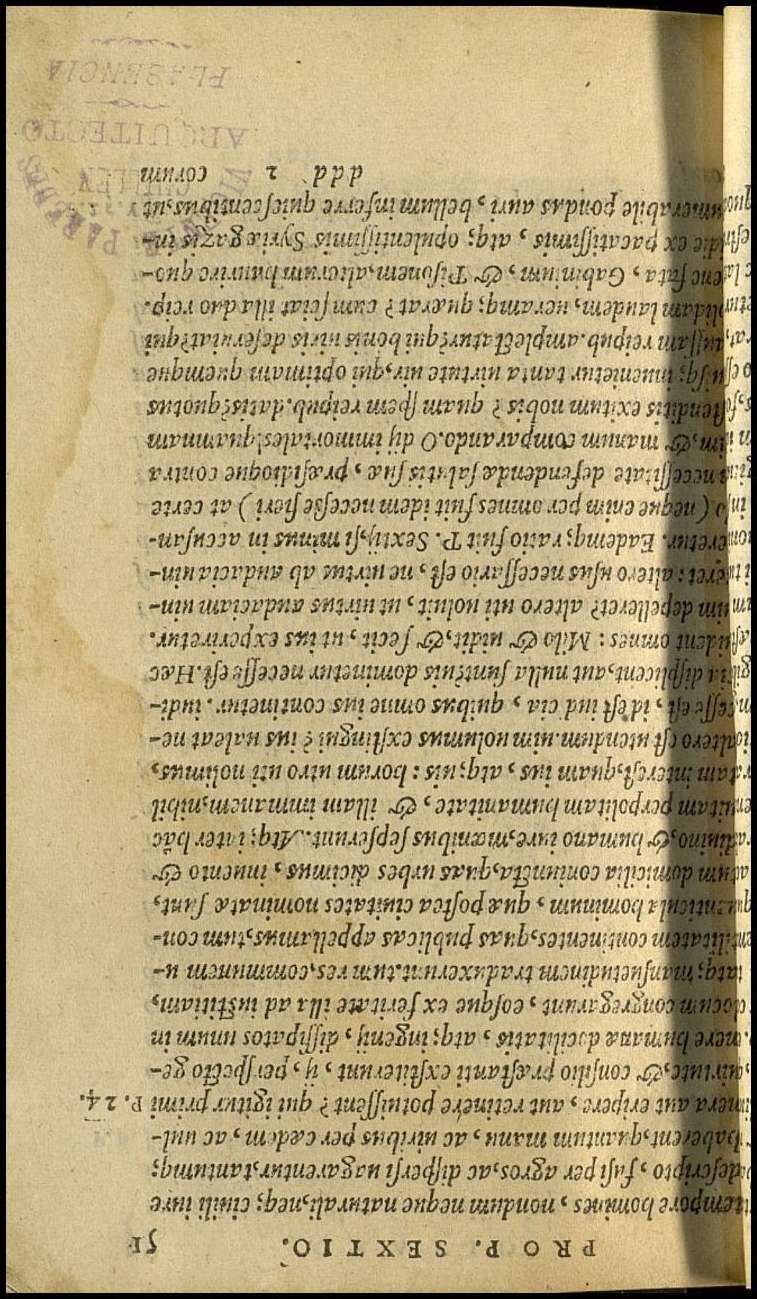 PRO P. SEXTIO. 51
tempore homines, nondum neque naturali, neq; ciuili iure
descripto, fusi per agros, ac dispersi uagarentur, tantumq;
haberent, quantum manu, ac uiribus per cædem, ac uul-
nera aut eripere, aut retinere potuissent? qui igitur primi P. 24.
uirtute, & consilio præstanti exstiterunt, ij, perspecto ge-
nere humanæ docilitatis, atq; ingenij, dissipatos unum in
locum congregarunt, eosque ex feritate illa ad iustitiam,
atq; mansuetudinem traduxerunt. tum res, communem u-
tilitatem continentes, quas publicas appellamus, tum con-
uenticula hominum, quæ postea ciuitates nominatæ sunt,
tum domicilia coniuncta, quas urbes dicimus, inuento &
diuino, & humano iure, mœnibus sepserunt. Atq; inter hãc
uitam perpolitam humanitate, & illam immanem, nihil
tam interest, quam ius, atq; uis: horum utro uti nolimus,
altero est utendum. uim uolumus exstingui? ius ualeat ne-
cesse est, id est iudicia, quibus omne ius continetur. iudi-
cia displicent, aut nulla sunt? uis dominetur necesse est. Hæc
uident omnes: Milo & uidit, & fecit, ut ius experiretur,
uim depelleret? altero uti uoluit, ut uirtus audaciam uin-
ceret: altero usus necessario est, ne uirtus ab audacia uin-
ceretur. Eademq; ratio fuit P. Sextij, si minus in accusan-
do (neque enim per omnes fuit idem necesse fieri) at certe
in necessitate defendendæ salutis suæ, præsidioque contra
uim, & manum comparando. O dij immortales! quamnam
ostenditis exitum nobis? quam spem reipub. datis? quotus
quisq; inuenietur tanta uirtute uir, qui optimam quamque
caussam reipub. amplectatur? qui bonis uiris deseruiat? qui
solidam laudem, ueramq; quærat? cum sciat illa duo reip.
pæne fata, Gabinium, & Pisonem, alterum haurire quo-
tidie ex pacatissimis, atq; opulentissimis Syriæ gazis in-
numerabile pondus auri, bellum inferre quiescentibus, ut
ddd 2 eorum
ARQUITECTO
PLASENCIA